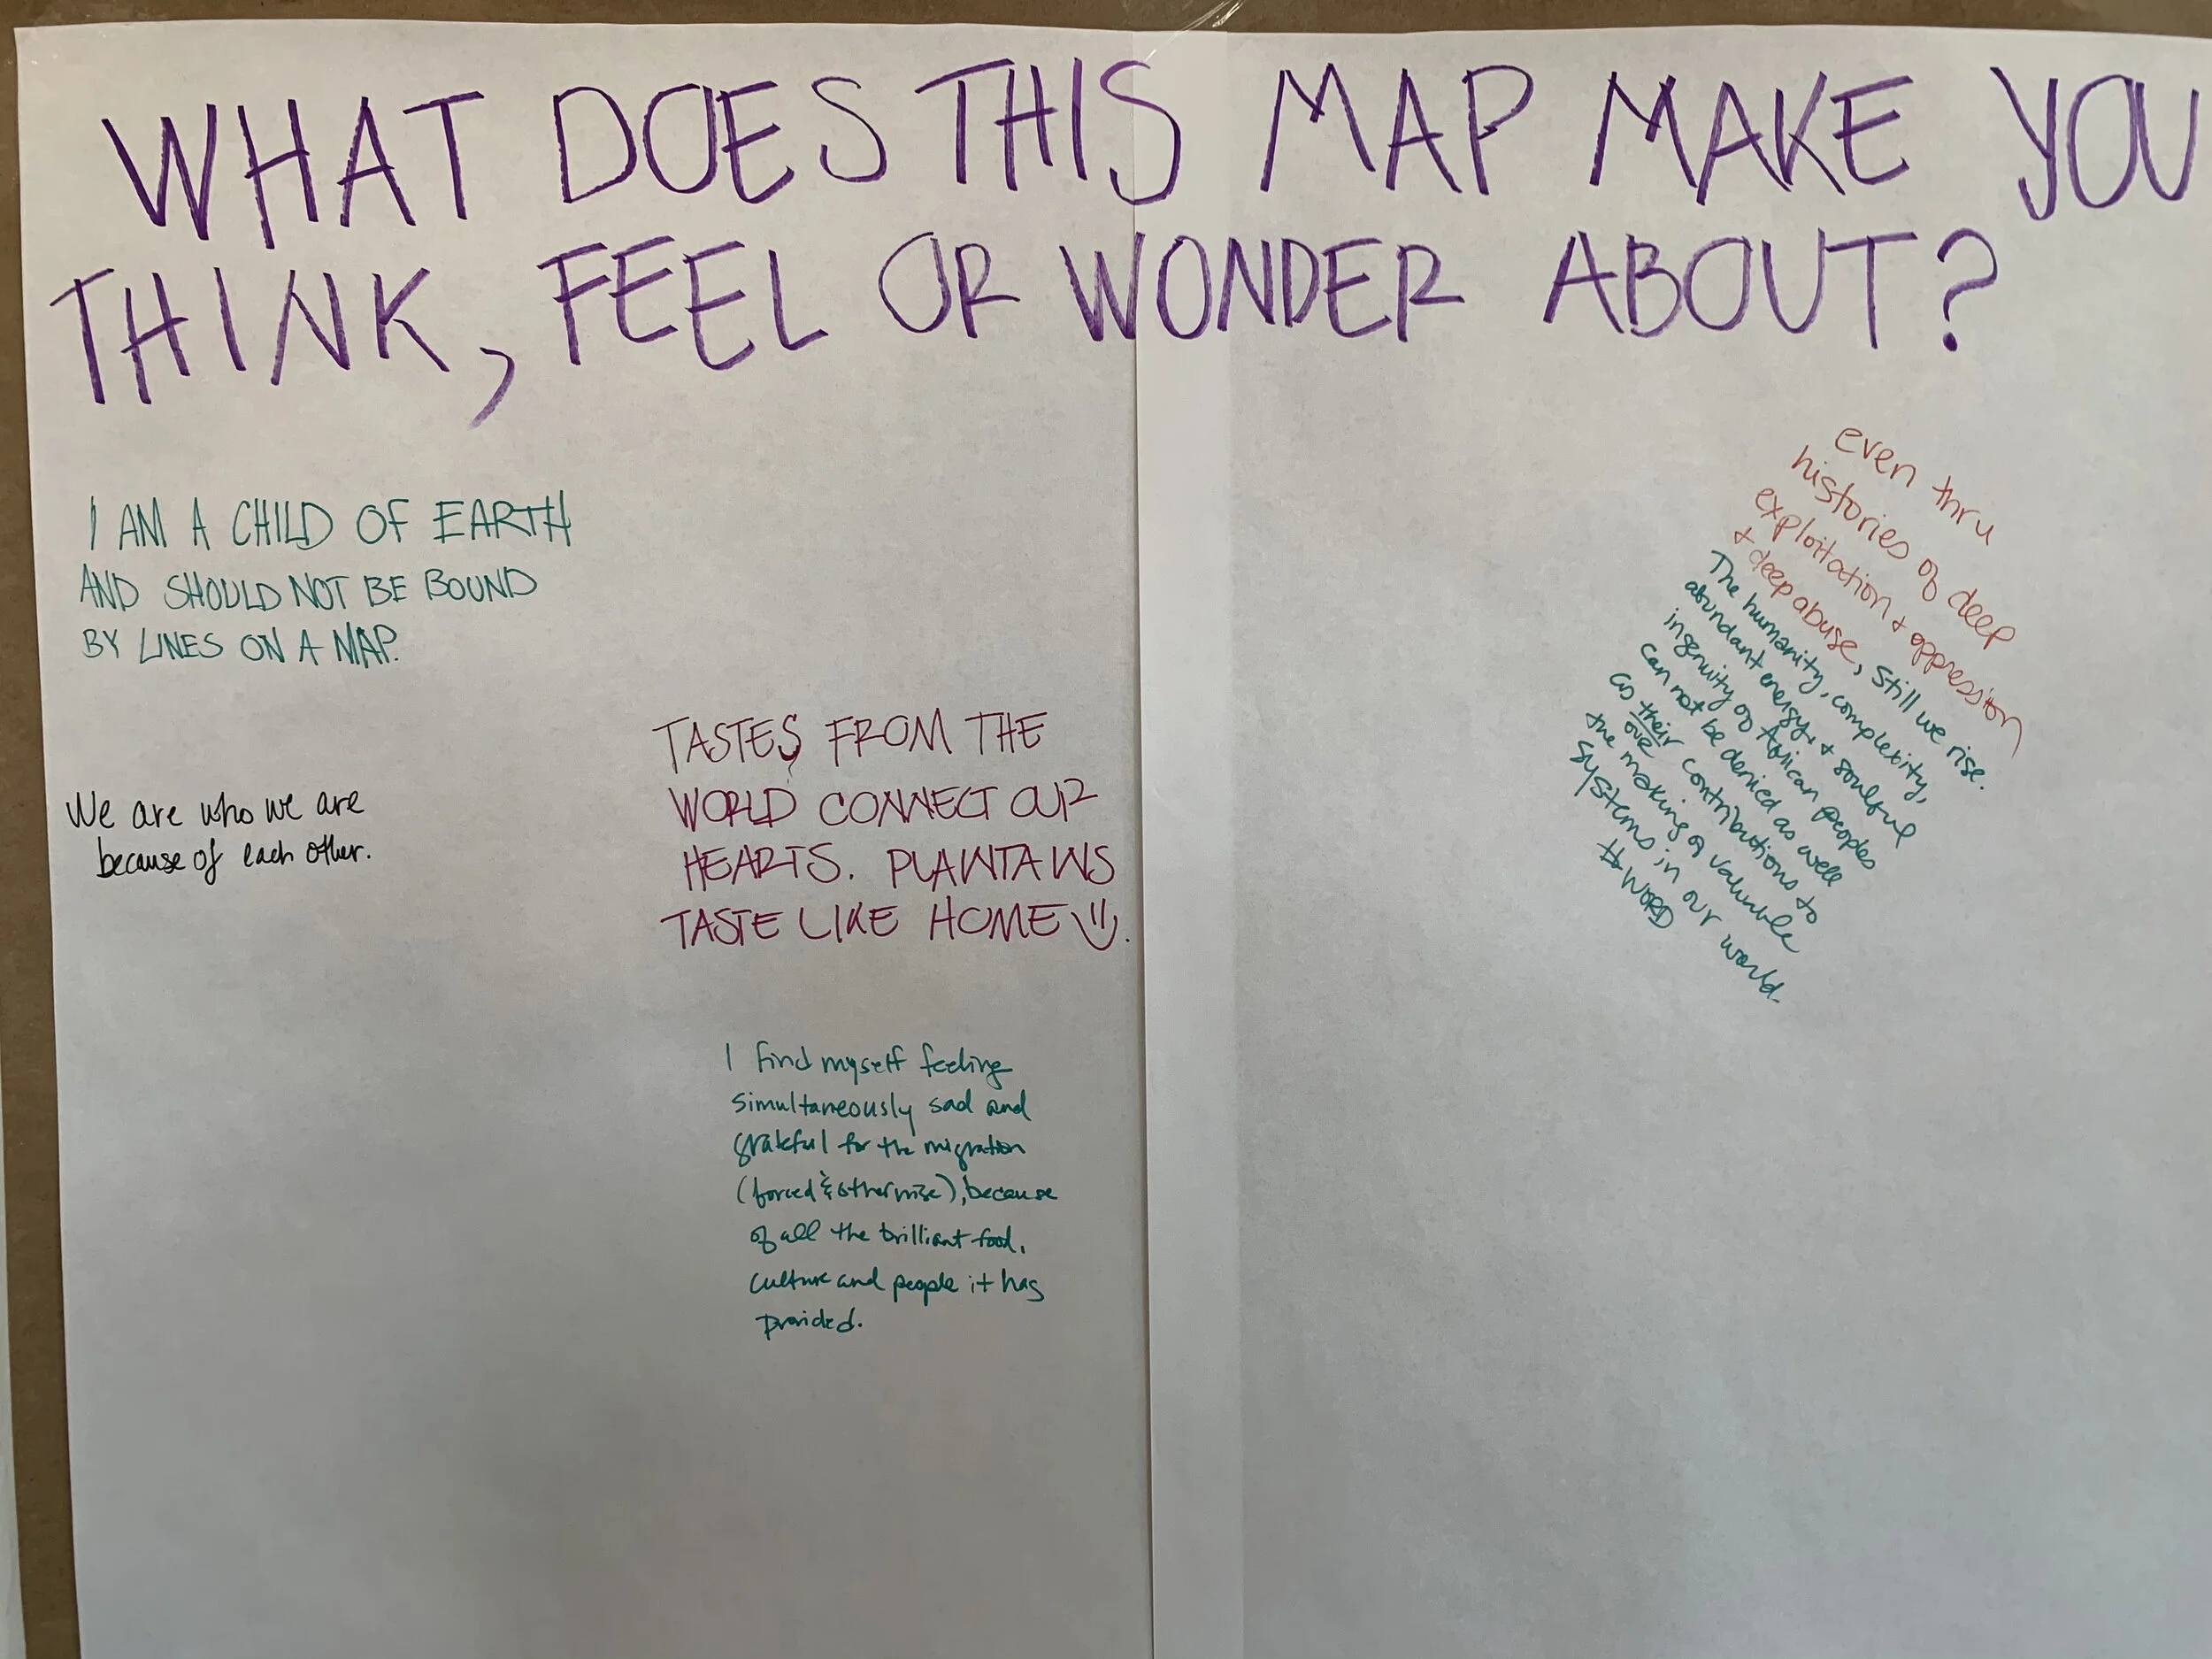 WHAT DOES THIS MAP MAKE YOU
THINK, FEEL OR WONDER ABOUT?
I AM A CHILD OF EARTH
AND SHOULD NOT BE BOUND
BY LINES ON A MAP.
We are who we are
because of each other.
TASTES FROM THE
WORLD CONNECT OUR
HEARTS. PLANTAINS
TASTE LIKE HOME
I find myself feeling
simultaneously sad and
grateful for the migration
(forced & otherwise), because
of all the brilliant food,
culture and people it has
provided.
even thru
histories of deep
exploitation + oppression
+ deep abuse, Still we rise.
The humanity, complexity,
abundant energy, + soulful
ingenuity of African peoples
can not be denied as well
as their contributions to
our
the making of valuable
systems in our world.
#WORD